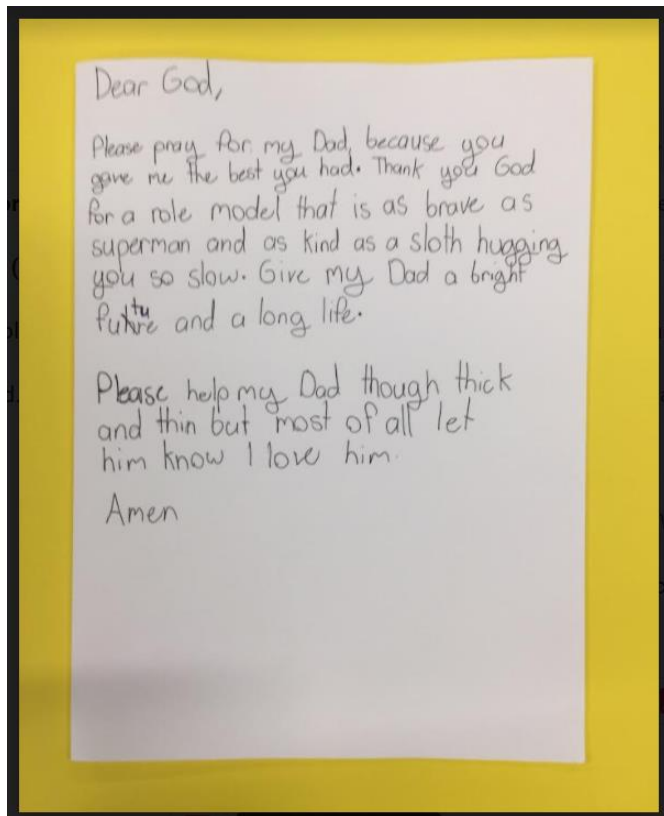 Dear God,
Please pray for my Dad, because you
gave me the best you had. Thank you God
for a role model that is as brave as
superman and as kind as a sloth hugging
you so slow. Give my Dad a bright
future and a long life.
Please help my Dad though thick
and thin but most of all let
him know I love him.
Amen